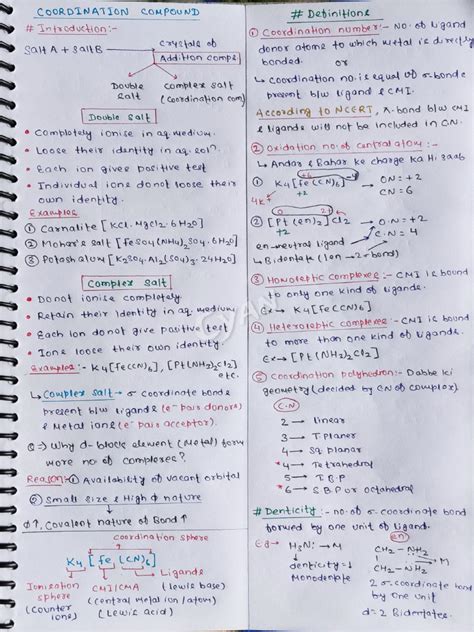 COORDINATION COMPOUND
# Introduction:-
Salt A + Salt B → Crystals of
Addition comps.
Double Salt
Complex Salt
(Coordination com)
Double Salt
• Completely ionise in aq. medium.
• Loose their identity in aq. sol?.
• Each ion gives positive test
• Individual ions do not loose their
own identity.
Examples
① Carnalite [KCl. MgCl2. 6H2O]
② Mohar's salt [FeSO4(NH4)2SO4. 6H2O]
③ Potashalum [K2SO4. Al2(SO4)3. 24H2O]
Complex Salt
• Do not ionise completely.
• Retain their identity in aq. medium.
• Each ion do not give positive test
• Ions loose their own identity.
Examples:- K4[Fe(CN)6], [Pt(NH3)2Cl2]
etc.
↳ Complex salt → σ coordinate bonds
present b/w ligands (e⁻ pair donors)
& Metal ions (e⁻ pair acceptor).
Q ⇒ Why d-block element (Metal) form
more no of complexes?
Reason:- ① Availability of vacant orbital
② Small size & High d nature
Ø↑, Covalent nature of Bond ↑
Coordination sphere
K4 [Fe (CN)6]
Ionisation
sphere
(counter
ions)
CMI/CMA
(central metal ion/atom)
(Lewis acid)
Ligands
(lewis base)
# Definitions
① Coordination number:- NO. of Ligand
donor atoms to which metal is directly
bonded.
or
↳ Coordination no. is equal to σ-bonds
present b/w ligands & CMI.
According to NCERT, π-bond b/w CMI
& ligands will not be included in CN.
② Oxidation no. of central atom:-
↳ Andar & Bahar ke charge ka Hisaab
① K4[Fe(CN)6]
4K+
+2
ON = +2
CN = 6
② [Pt(en)2]Cl2
+2
O.N = +2
C.N = 4
en → neutral ligand
Bidentate (1en → 2σ-bond)
③ Homoleptic complexes:- CMI is bound
to only one kind of ligands.
Ex → K4[Fe(CN)6]
④ Heteroleptic complexes:- CMI is bound
to more than one kind of Ligands.
Ex → [Pt(NH3)2Cl2]
⑤ Coordination polyhedron:- Dabbe ki
geometry (decided by CN of complex).
C.N
2 → linear
3 → T. planer
4 → Sq. planar
*4 → Tetrahedral
5 → T.B.P
*6 → S.B.P or octahedral
# Denticity:- no. of σ-coordinate bond
formed by one unit of ligand.
Eg → H3N: → M
denticity = 1
Monodentate
(en)
CH2 - NH2
M
CH2 - NH2
2 σ-coordinate bond
by one unit
d = 2 Bidentates.